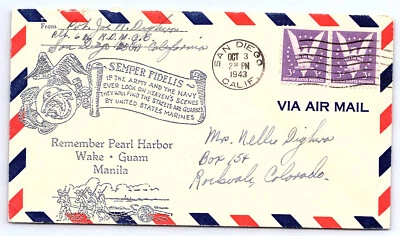 From Pvt. Joe N. Dighera
Plt. R.D. M.C.B.
San Diego California
SAN DIEGO
OCT 3
2 PM
1943
CALIF.
3¢ 3¢
UNITED STATES POSTAGE UNITED STATES POSTAGE
VIA AIR MAIL
SEMPER FIDELIS
IF THE ARMY AND THE NAVY
EVER LOOK ON HEAVEN'S SCENES
THEY WILL FIND THE STREETS ARE GUARDED
BY UNITED STATES MARINES
Remember Pearl Harbor
Wake · Guam
Manila
Mrs. Nellie Dighera
Box 154
Rockvale, Colorado.